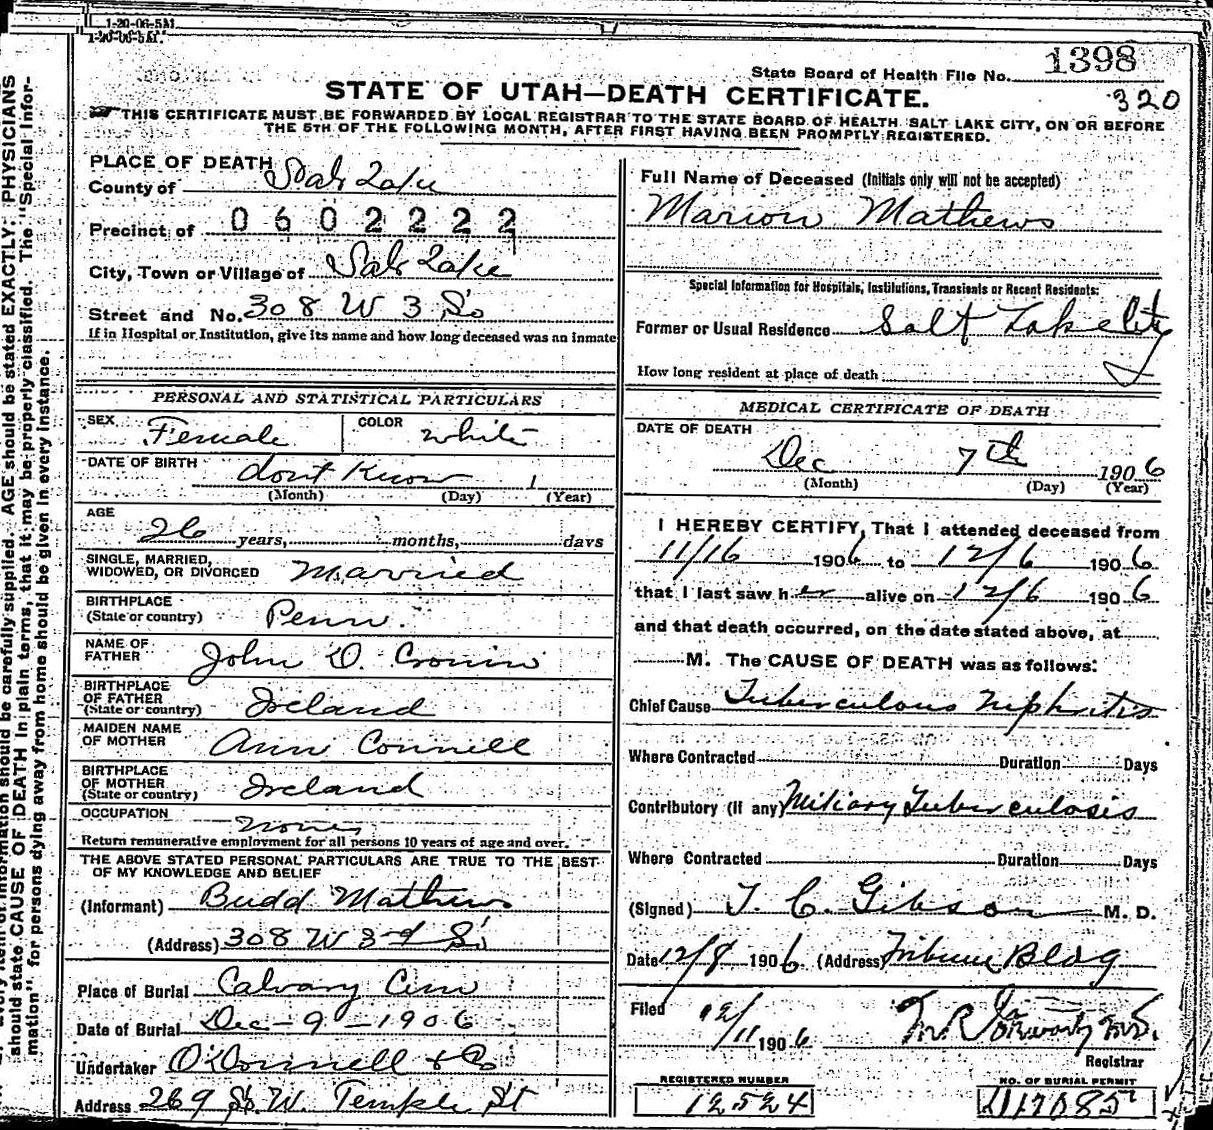 1-20-06-5M.
1-20-06-5M.
State Board of Health File No. 1398
320
STATE OF UTAH—DEATH CERTIFICATE.
THIS CERTIFICATE MUST BE FORWARDED BY LOCAL REGISTRAR TO THE STATE BOARD OF HEALTH SALT LAKE CITY, ON OR BEFORE
THE 5TH OF THE FOLLOWING MONTH, AFTER FIRST HAVING BEEN PROMPTLY REGISTERED.
PLACE OF DEATH
County of Salt Lake
Precinct of 0602222
City, Town or Village of Salt Lake
Street and No. 308 W 3 So
If in Hospital or Institution, give its name and how long deceased was an inmate
PERSONAL AND STATISTICAL PARTICULARS
SEX Female COLOR white
DATE OF BIRTH dont Know 1
(Month) (Day) (Year)
AGE
26 years, months, days
SINGLE, MARRIED,
WIDOWED, OR DIVORCED Married
BIRTHPLACE
(State or country) Penn.
NAME OF
FATHER John D. Cronin
BIRTHPLACE
OF FATHER
(State or country) Ireland
MAIDEN NAME
OF MOTHER Ann Connell
BIRTHPLACE
OF MOTHER
(State or country) Ireland
OCCUPATION
None
Return remunerative employment for all persons 10 years of age and over.
THE ABOVE STATED PERSONAL PARTICULARS ARE TRUE TO THE BEST
OF MY KNOWLEDGE AND BELIEF
(Informant) Budd Mathews
(Address) 308 W 3rd So
Place of Burial Calvary Cem
Date of Burial Dec-9-1906
Undertaker O'Connell & Co
Address 269 So. W. Temple St
Full Name of Deceased (Initials only will not be accepted)
Marion Mathews
Special Information for Hospitals, Institutions, Transients or Recent Residents:
Former or Usual Residence Salt Lake City
How long resident at place of death
MEDICAL CERTIFICATE OF DEATH
DATE OF DEATH
Dec 7th 1906
(Month) (Day) (Year)
I HEREBY CERTIFY, That I attended deceased from
11/16 1906 to 12/6 1906
that I last saw her alive on 12/6 1906
and that death occurred, on the date stated above, at
M. The CAUSE OF DEATH was as follows:
Chief Cause Tuberculous Nephritis
Where Contracted Duration Days
Contributory (if any) Miliary Tuberculosis
Where Contracted Duration Days
(Signed) T C Gibson M. D.
Date 12/8 1906 (Address) Tribune Bldg
Filed 12/11 1906 M.D.
Registrar
REGISTERED NUMBER
12524
NO. OF BURIAL PERMIT
should be carefully supplied. AGE should be stated EXACTLY; PHYSICIANS
should state CAUSE OF DEATH in plain terms, that it may be properly classified. The "Special Infor-
mation" for persons dying away from home should be given in every instance.